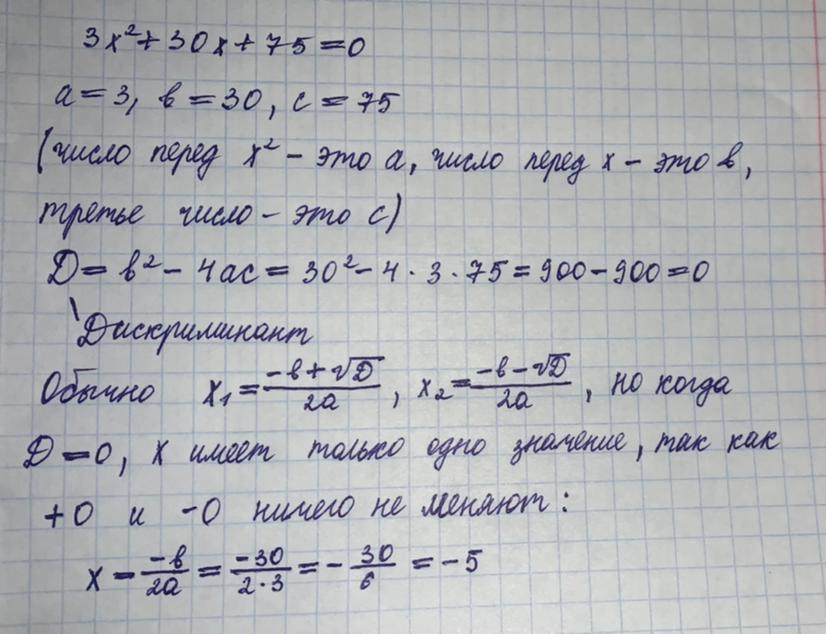 3x² + 30x + 75 = 0
a = 3, b = 30, c = 75
(число перед x² – это a, число перед x – это b,
третье число – это c)
D = b² – 4ac = 30² – 4 · 3 · 75 = 900 – 900 = 0
Дискриминант
Обычно x₁ = (-b + √D)/2a, x₂ = (-b - √D)/2a, но когда
D = 0, x имеет только одно значение, так как
+0 и -0 ничего не меняют:
x = -b/2a = -30/2·3 = - 30/6 = -5